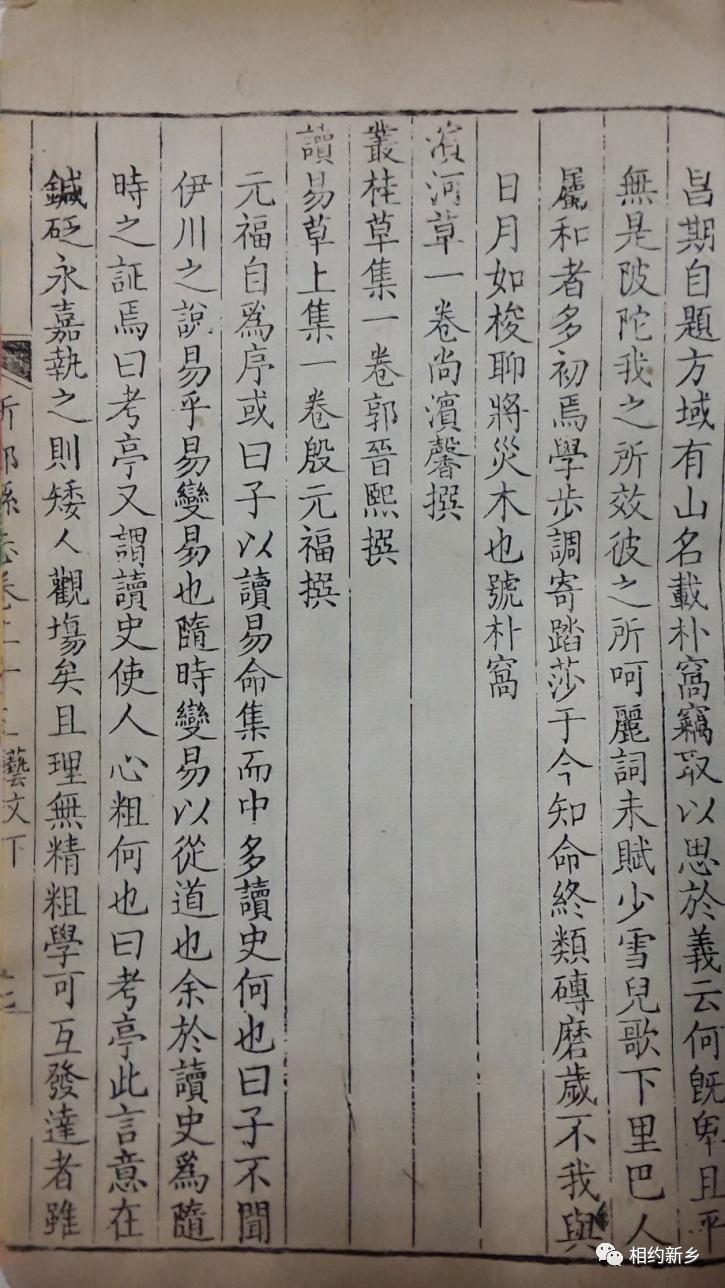 昌期自題方域有山名載朴窩竊取以思於義云何既卑且平
無是陂陀我之所效彼之所呵麗詞未賦少雪兒歌下里巴人
屬和者多初焉學步調寄踏莎于今知命終類磚磨歲不我與
日月如梭聊將災木也號朴窩
濱河草一卷尚濱馨撰
叢桂草集一卷郭晉熙撰
讀易草上集一卷殷元福撰
元福自爲序或曰子以讀易命集而中多讀史何也曰子不聞
伊川之說易乎易變易也隨時變易以從道也余於讀史爲隨
時之証焉曰考亭又謂讀史使人心粗何也曰考亭此言意在
鍼砭永嘉執之則矮人觀場矣且理無精粗學可互發達者雖
縣志卷二十 藝文下
相约新乡